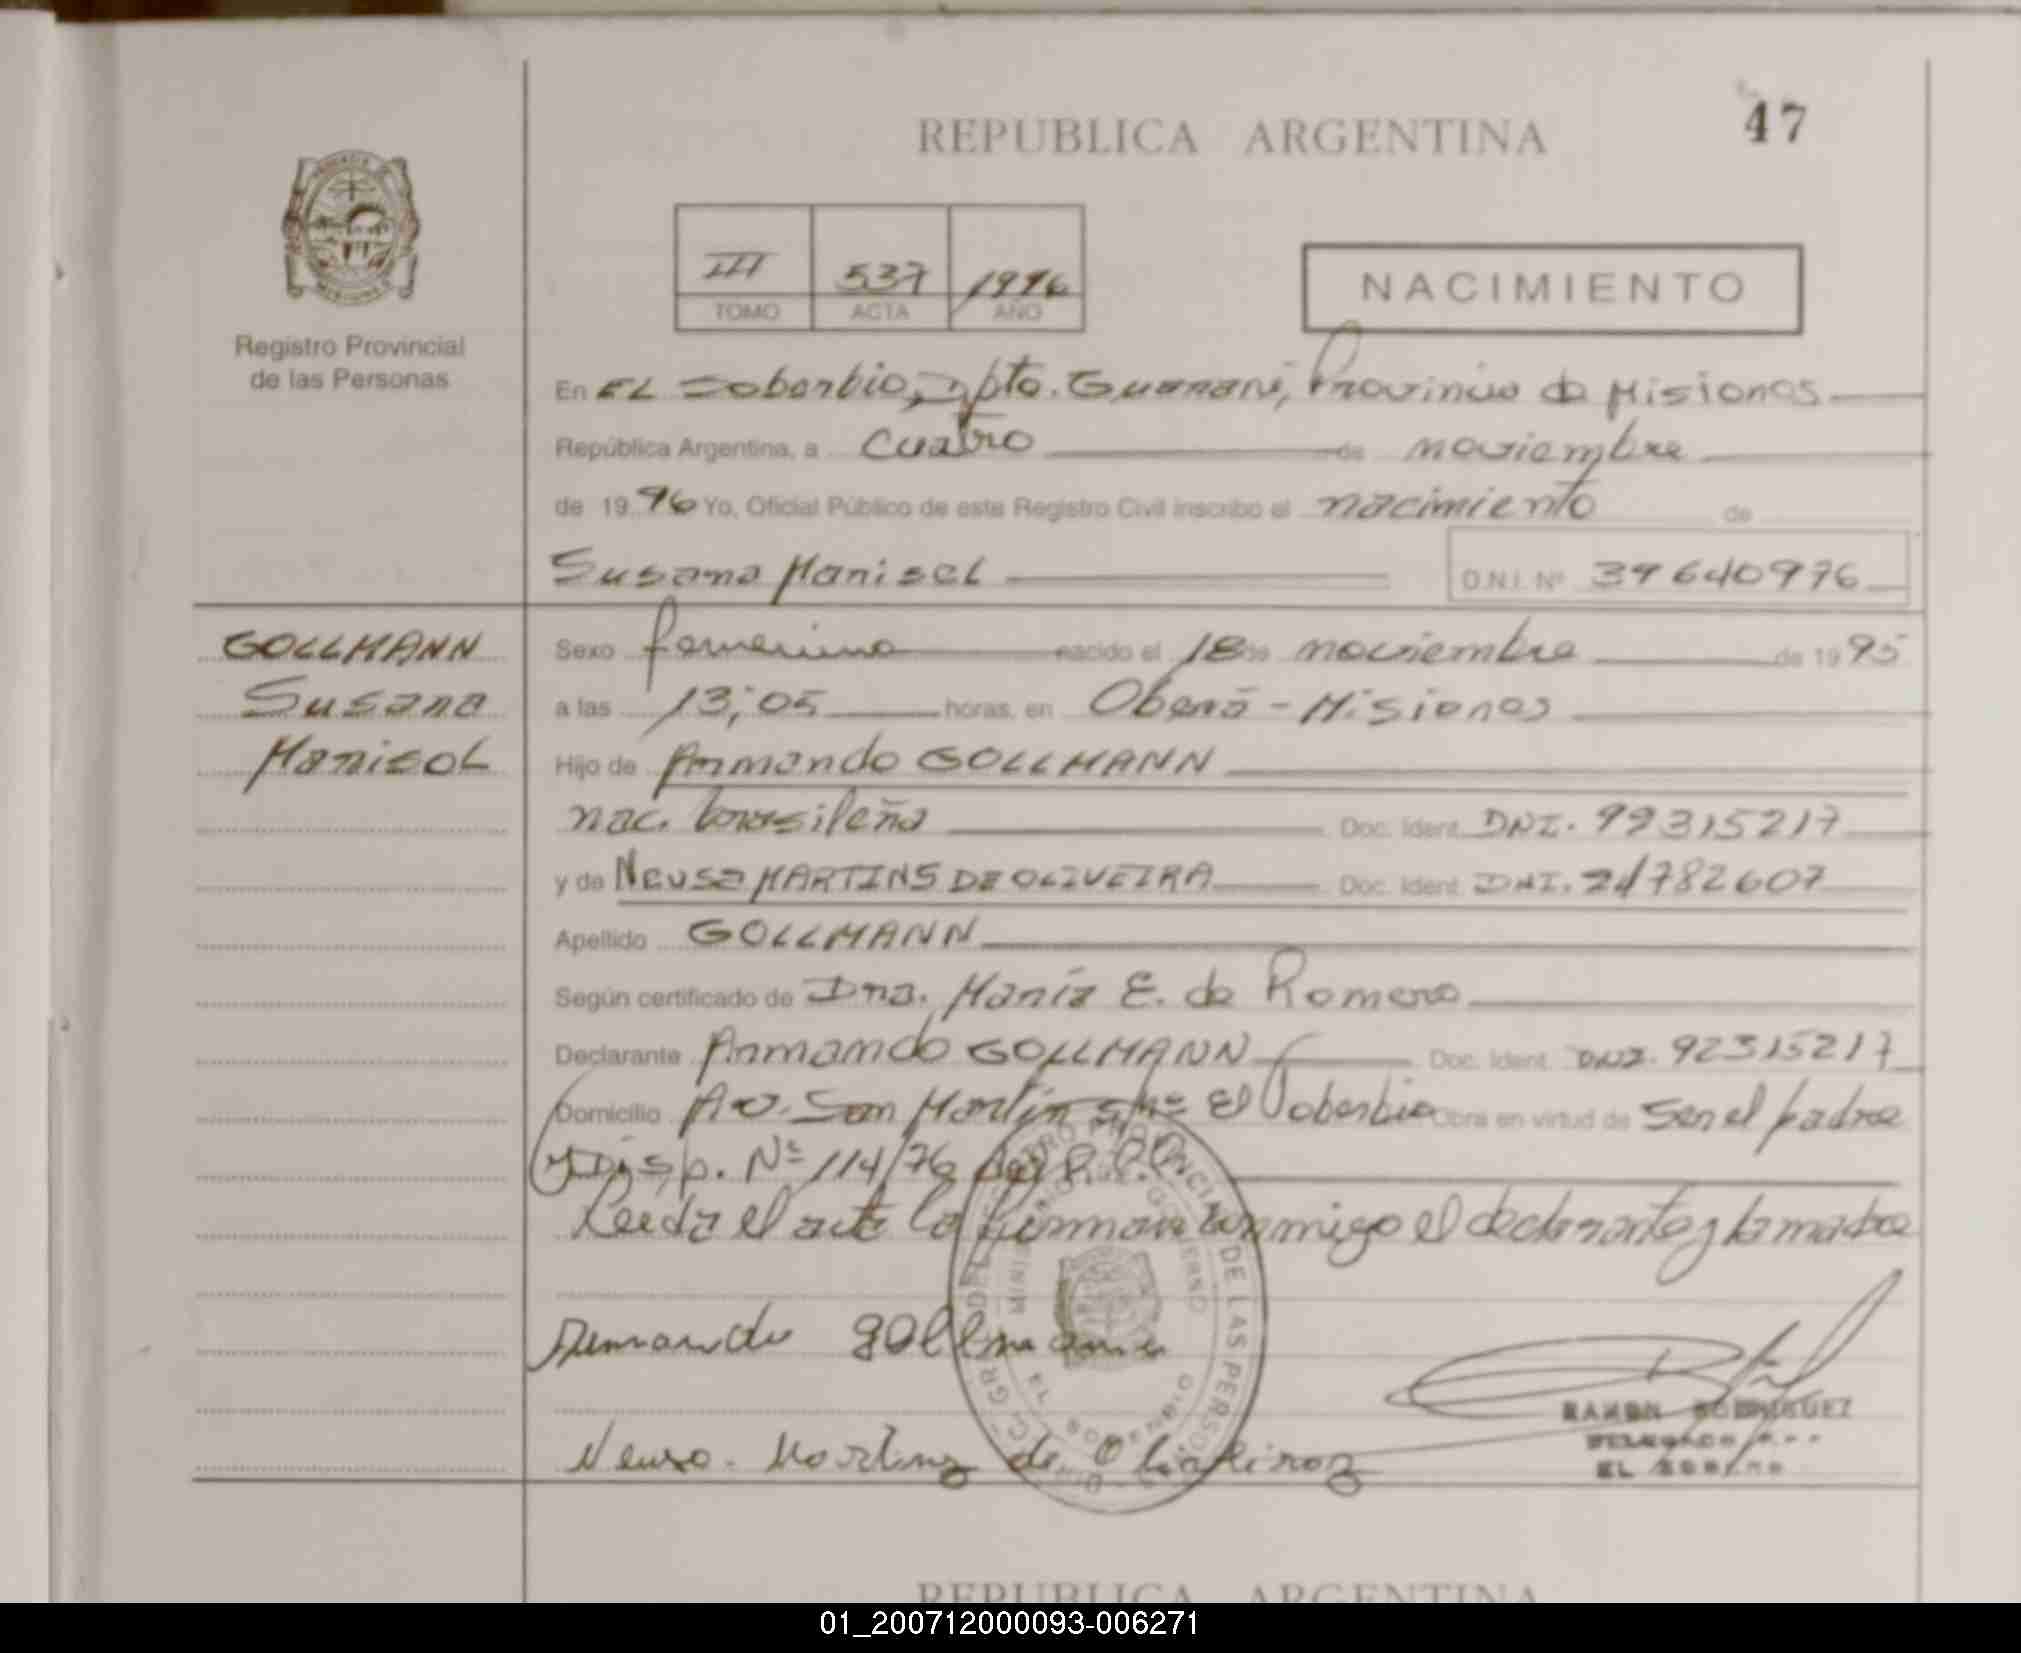 47
REPUBLICA ARGENTINA
III 537 1996
TOMO ACTA AÑO
NACIMIENTO
Registro Provincial
de las Personas
En EL Soberbio, Dpto. Guaraní, Provincia de Misiones
República Argentina, a cuatro de noviembre
de 1996 Yo, Oficial Público de este Registro Civil inscribo el nacimiento de
Susana Marisel D.N.I. Nº 39640976
GOLLMANN
Susana
MarisoL
Sexo femenino nacido el 18 de noviembre de 1995
a las 13;05 horas, en Oberá - Misiones
Hijo de Armando GOLLMANN
nac. brasileña Doc. Ident. DNI. 92315217
y de Neusa MARTINS DE OLIVEIRA Doc. Ident. DNI. 24782607
Apellido GOLLMANN
Según certificado de Dra. María E. de Romero
Declarante Armando GOLLMANN Doc. Ident. DNI. 92315217
Domicilio Av. San Martín s/nº El Soberbio Obra en virtud de ser el padre
y Disp. Nº 114/76 del R.P.P.
Leida el acta la firman conmigo el declarante y la madre
Armando gollmann
Neusa. Martins de
RAMON RODRIGUEZ
DELEGADO
EL
REGISTRO PROVINCIAL DE LAS PERSONAS
MINISTERIO DE GOBIERNO
EL SOBERBIO
REPUBLICA ARGENTINA
01_200712000093-006271